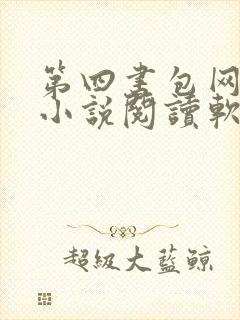 第四書包网
小説閱讀軟
超級大藍鯨